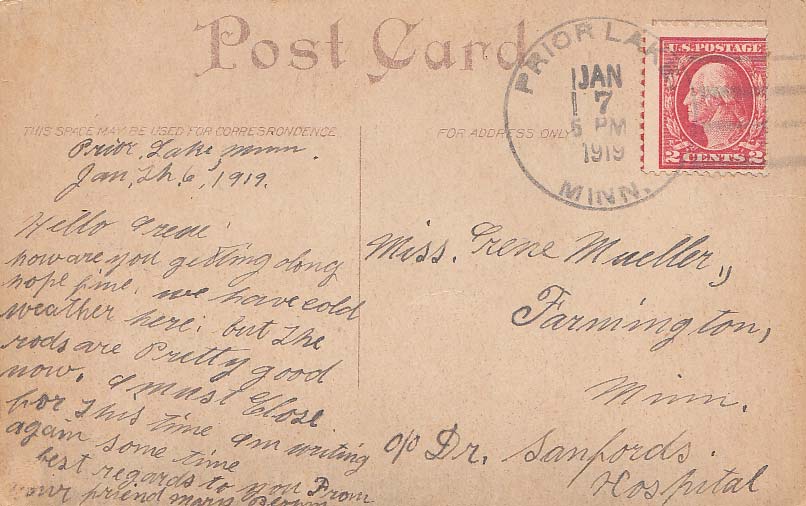 Post Card
THIS SPACE MAY BE USED FOR CORRESPONDENCE
FOR ADDRESS ONLY
PRIOR LAKE
JAN
7
5 PM
1919
MINN.
U.S. POSTAGE
2 CENTS 2
Prior, Lake, Minn.
Jan, Th, 6, 1919.
Hello Irene
how are you getting along
hope fine. we have cold
weather here. but the
rods are Pretty good
now. I must Close
for This time am writing
again some time
best regards to you From
your friend mary
Miss. Irene Mueller,
Farmington,
Minn.
c/o Dr. Sanfords.
Hospital